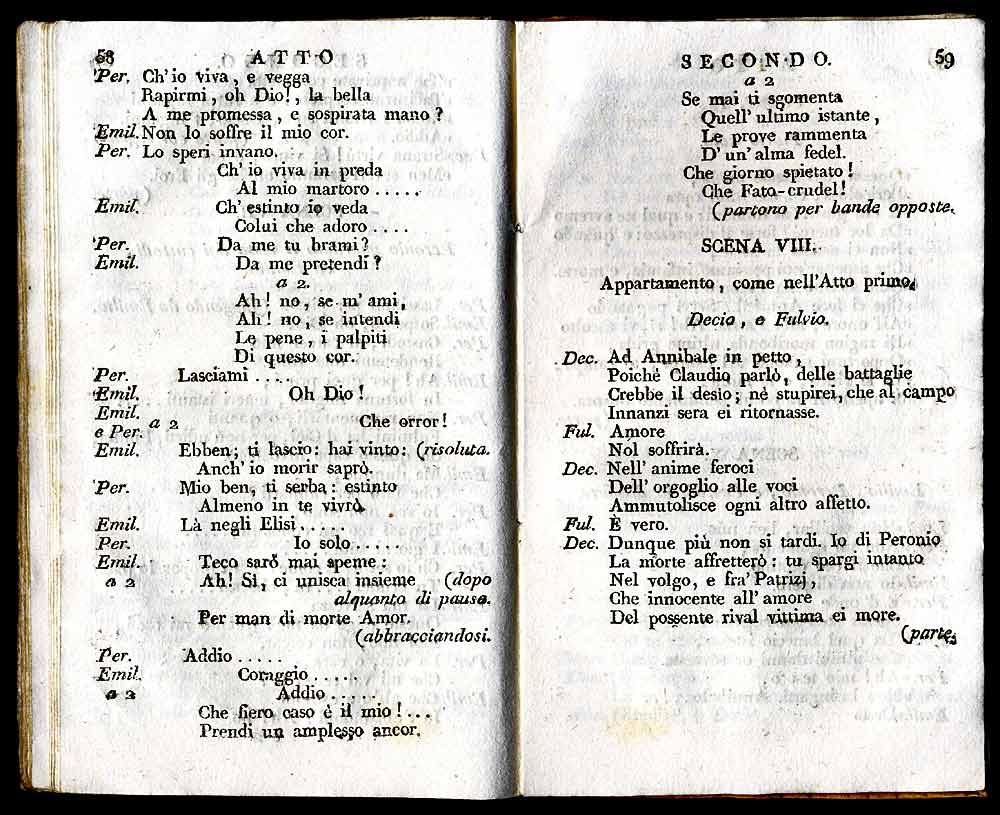 58 ATTO
Per. Ch' io viva, e vegga
Rapirmi, oh Dio!, la bella
A me promessa, e sospirata mano?
Emil. Non lo soffre il mio cor.
Per. Lo speri invano.
Ch' io viva in preda
Al mio martoro .....
Emil. Ch' estinto io veda
Colui che adoro ....
Per. Da me tu brami?
Emil. Da me pretendi?
a 2.
Ah! no, se m' ami,
Ah! no, se intendi
Le pene, i palpiti
Di questo cor.
Per. Lasciami ....
Emil. Oh Dio!
Emil. e Per. a 2 Che orror!
Emil. Ebben; ti lascio: hai vinto: (risoluta.
Anch' io morir saprò.
Per. Mio ben, ti serba: estinto
Almeno in te vivrò.
Emil. Là negli Elisi.....
Per. Io solo.....
Emil. Teco sarò mai speme:
a 2 Ah! Si, ci unisca insieme (dopo
alquanto di pausa.
Per man di morte Amor.
(abbracciandosi.
Per. Addio .....
Emil. Coraggio .....
a 2 Addio .....
Che fiero caso è il mio!...
Prendi un amplesso ancor.
SECONDO. 59
a 2
Se mai ti sgomenta
Quell' ultimo istante,
Le prove rammenta
D' un' alma fedel.
Che giorno spietato!
Che Fato crudel!
(partono per bande opposte.
SCENA VIII.
Appartamento, come nell' Atto primo.
Decio, e Fulvio.
Dec. Ad Annibale in petto,
Poichè Claudio parlò, delle battaglie
Crebbe il desio; nè stupirei, che al campo
Innanzi sera ei ritornasse.
Ful. Amore
Nol soffrirà.
Dec. Nell' anime feroci
Dell' orgoglio alle voci
Ammutolisce ogni altro affetto.
Ful. È vero.
Dec. Dunque più non si tardi. Io di Peronio
La morte affretterò: tu spargi intanto
Nel volgo, e fra' Patrizj,
Che innocente all' amore
Del possente rival vittima ei more.
(parte.